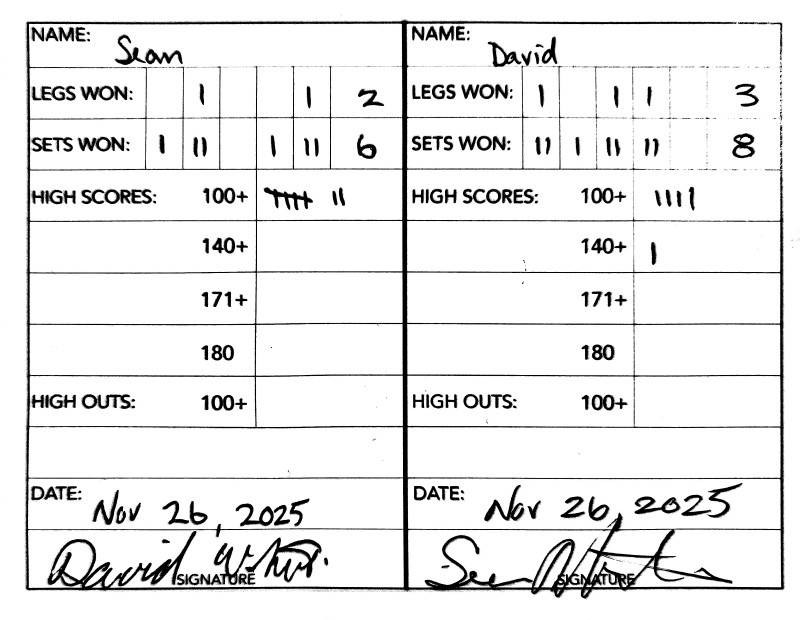 NAME: Sean
LEGS WON: I I 2
SETS WON: I II I II 6
HIGH SCORES: 100+ IIIII II
140+
171+
180
HIGH OUTS: 100+
DATE: Nov 26, 2025
David
SIGNATURE
NAME: David
LEGS WON: I I I 3
SETS WON: II I II II 8
HIGH SCORES: 100+ IIII
140+ I
171+
180
HIGH OUTS: 100+
DATE: Nov 26, 2025
Sean
SIGNATURE